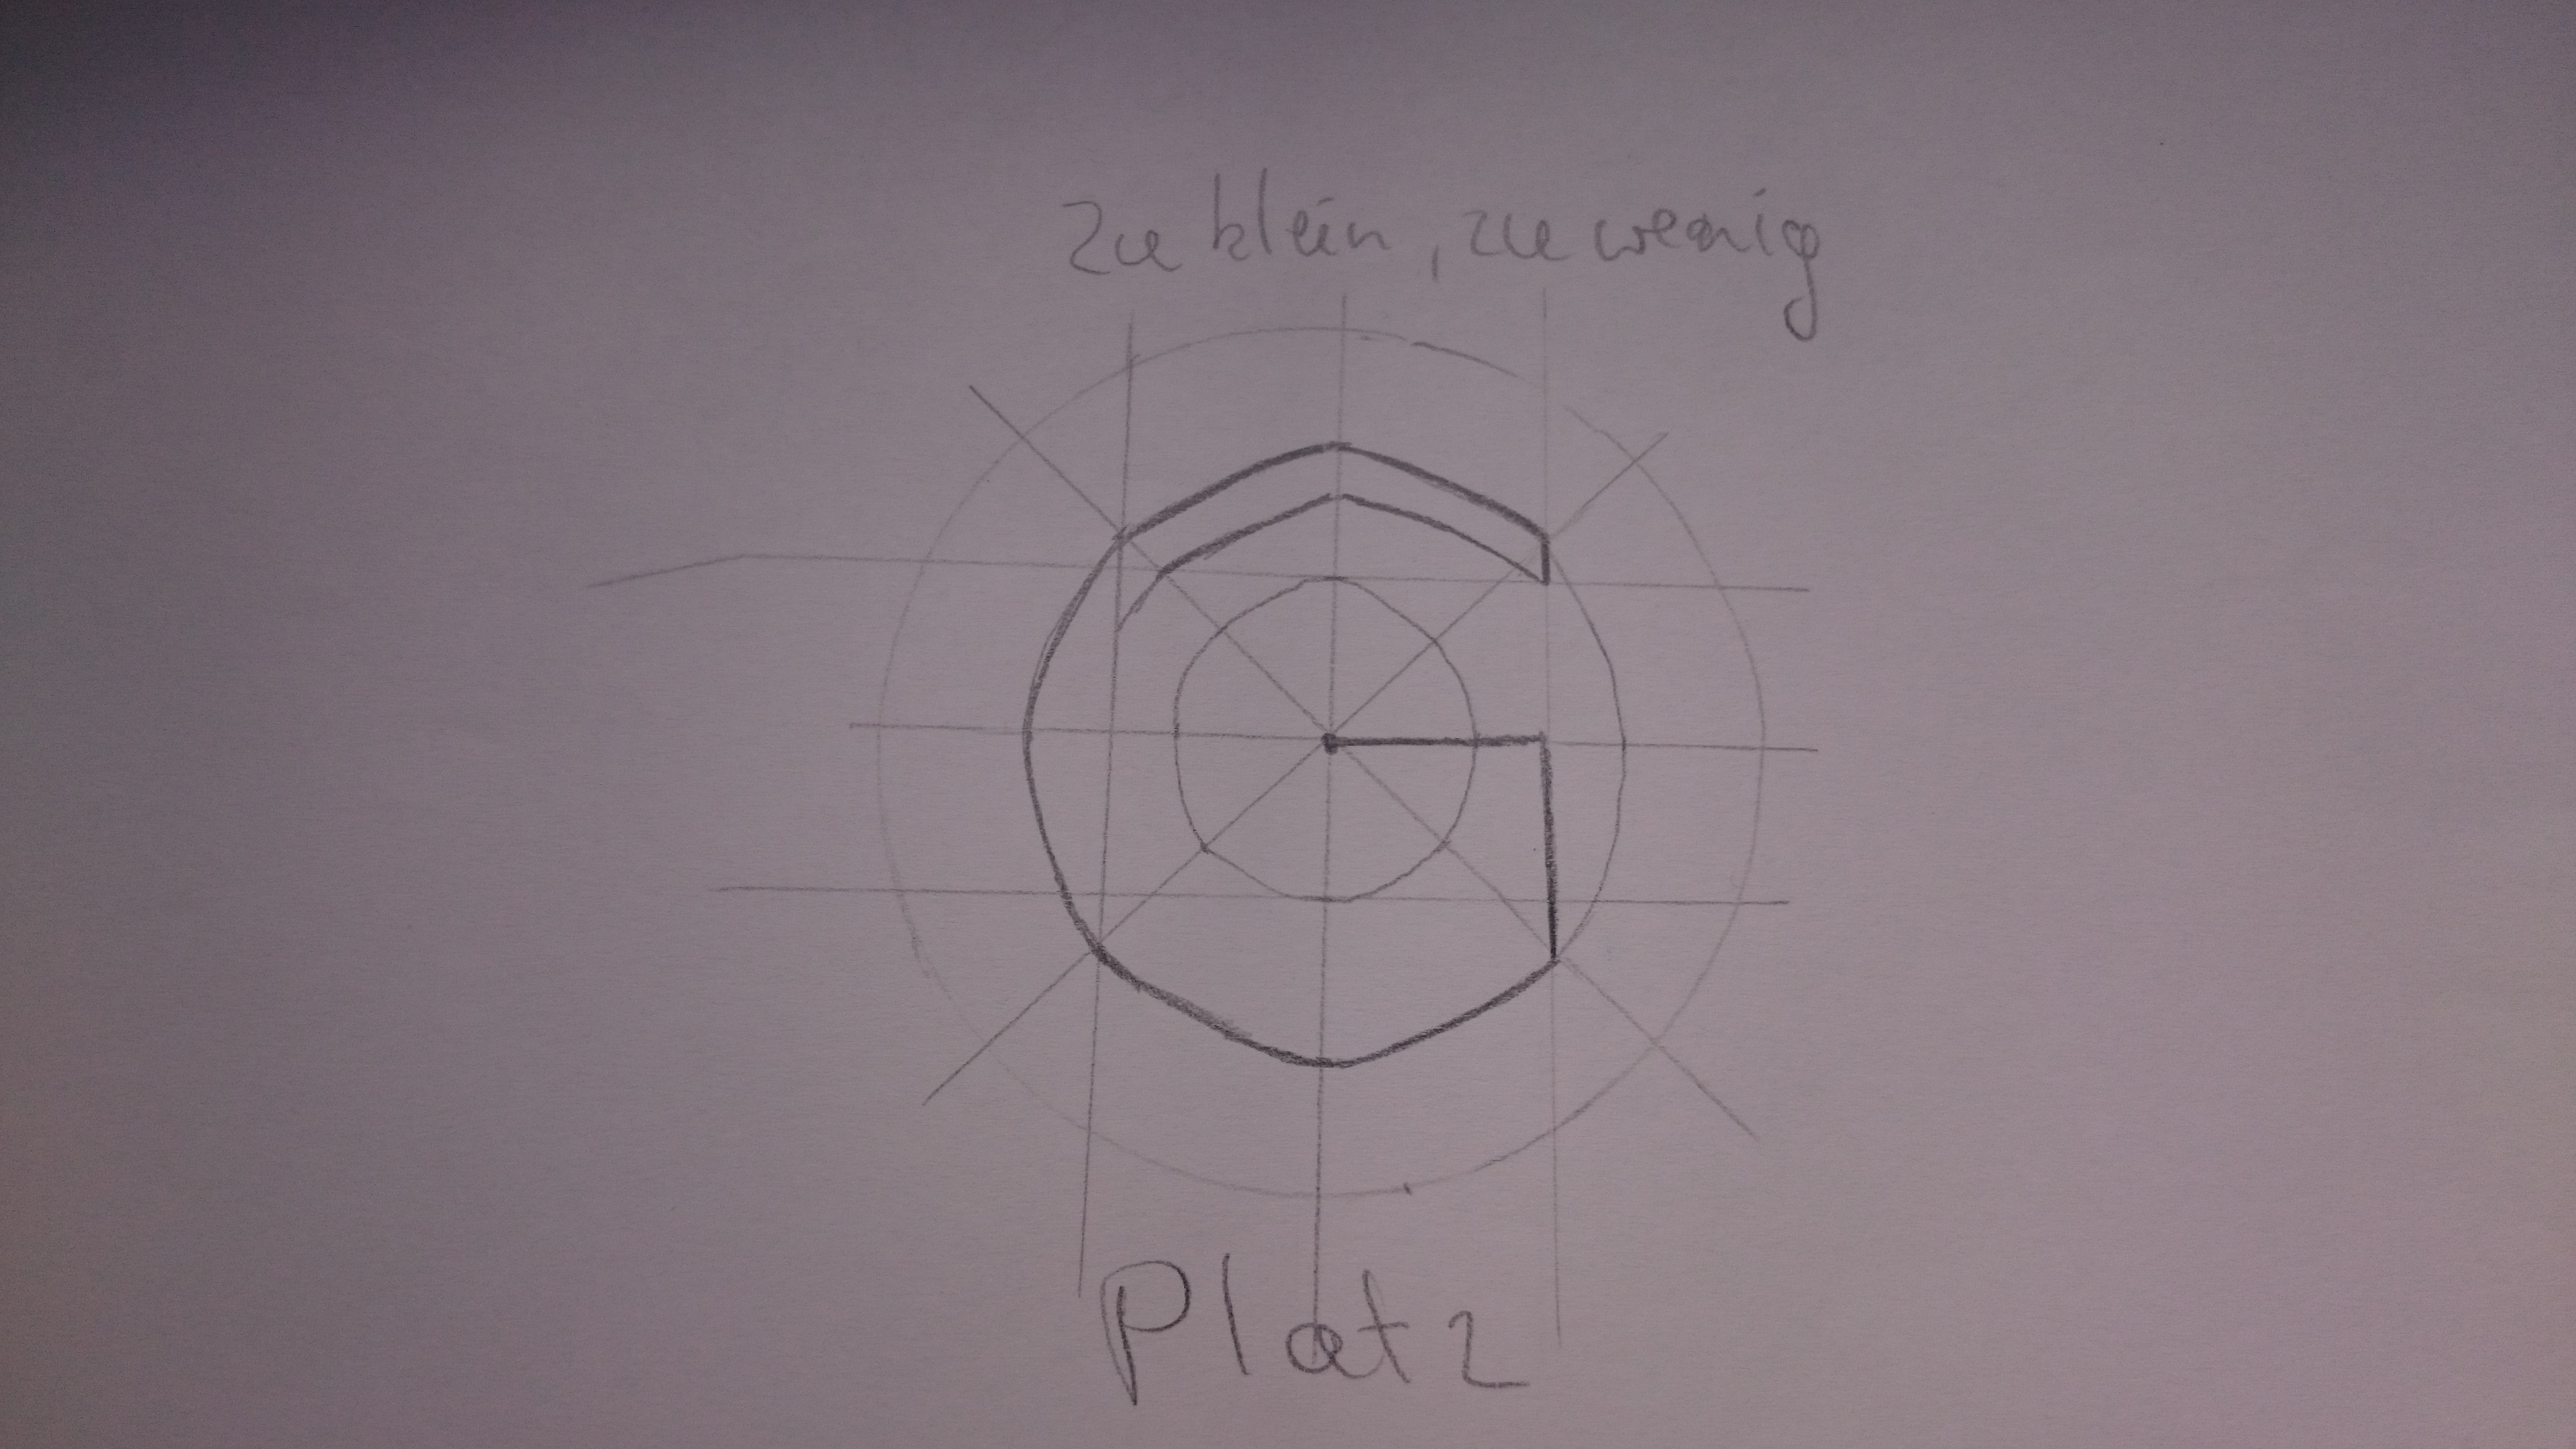 zu klein, zu wenig
Platz